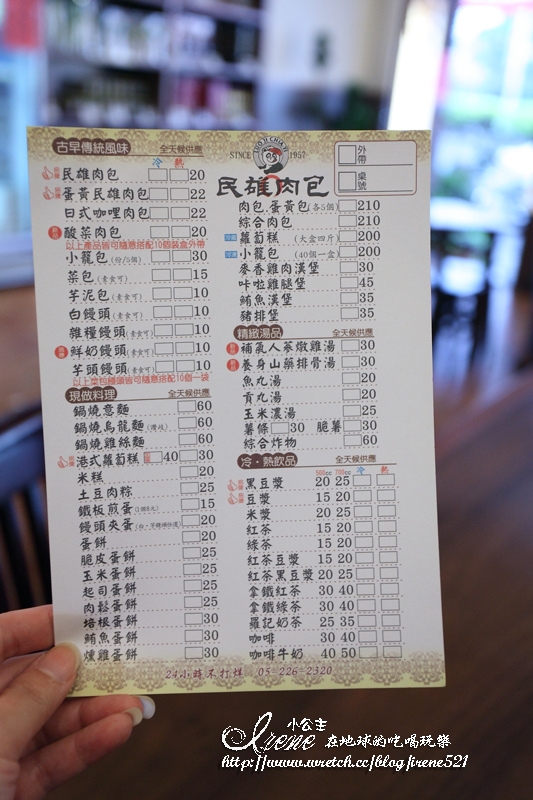 古早傳統風味 全天候供應
冷 熱
民雄肉包 20
蛋黃民雄肉包 22
日式咖哩肉包 22
酸菜肉包 20
以上產品皆可隨意搭配10個裝盒外帶
小籠包(份/5個) 30
菜包(素食可) 15
芋泥包(素食可) 10
白饅頭(素食可) 10
雜糧饅頭(素食可) 10
鮮奶饅頭(素食可) 10
芋頭饅頭(素食可) 10
以上菜包饅頭皆可隨意搭配10個一袋
現做料理 全天候供應
鍋燒意麵 60
鍋燒烏龍麵 60
鍋燒雞絲麵 60
港式蘿蔔糕 40 30
米糕 20
土豆肉粽 25
鐵板煎蛋 15
饅頭夾蛋 20
蛋餅 20
脆皮蛋餅 25
玉米蛋餅 25
起司蛋餅 25
肉鬆蛋餅 25
培根蛋餅 30
鮪魚蛋餅 30
燻雞蛋餅 30
SINCE 1957
民雄肉包
外帶
桌號
肉包.蛋黃包(各5個) 210
綜合肉包 210
蘿蔔糕 (大盒四斤) 200
小籠包 (40個一盒) 200
麥香雞肉漢堡 30
咔啦雞腿堡 45
鮪魚漢堡 35
豬排堡 35
精緻湯品 全天候供應
補氣人蔘燉雞湯 30
養身山藥排骨湯 30
魚丸湯 20
貢丸湯 20
玉米濃湯 25
薯條 30 脆薯 30
綜合炸物 60
冷・熱飲品 全天候供應
500cc 700cc 冷 熱
黑豆漿 20 25
豆漿 15 20
米漿 20 25
紅茶 15 20
綠茶 15 20
紅茶豆漿 15 20
紅茶黑豆漿 20 25
拿鐵紅茶 30 40
拿鐵綠茶 30 40
羅記奶茶 25 35
咖啡 30 40
咖啡牛奶 40 50
24小時不打烊 05-226-2320
小公主
Irene 在地球的吃喝玩樂
http://www.wretch.cc/blog/irene521